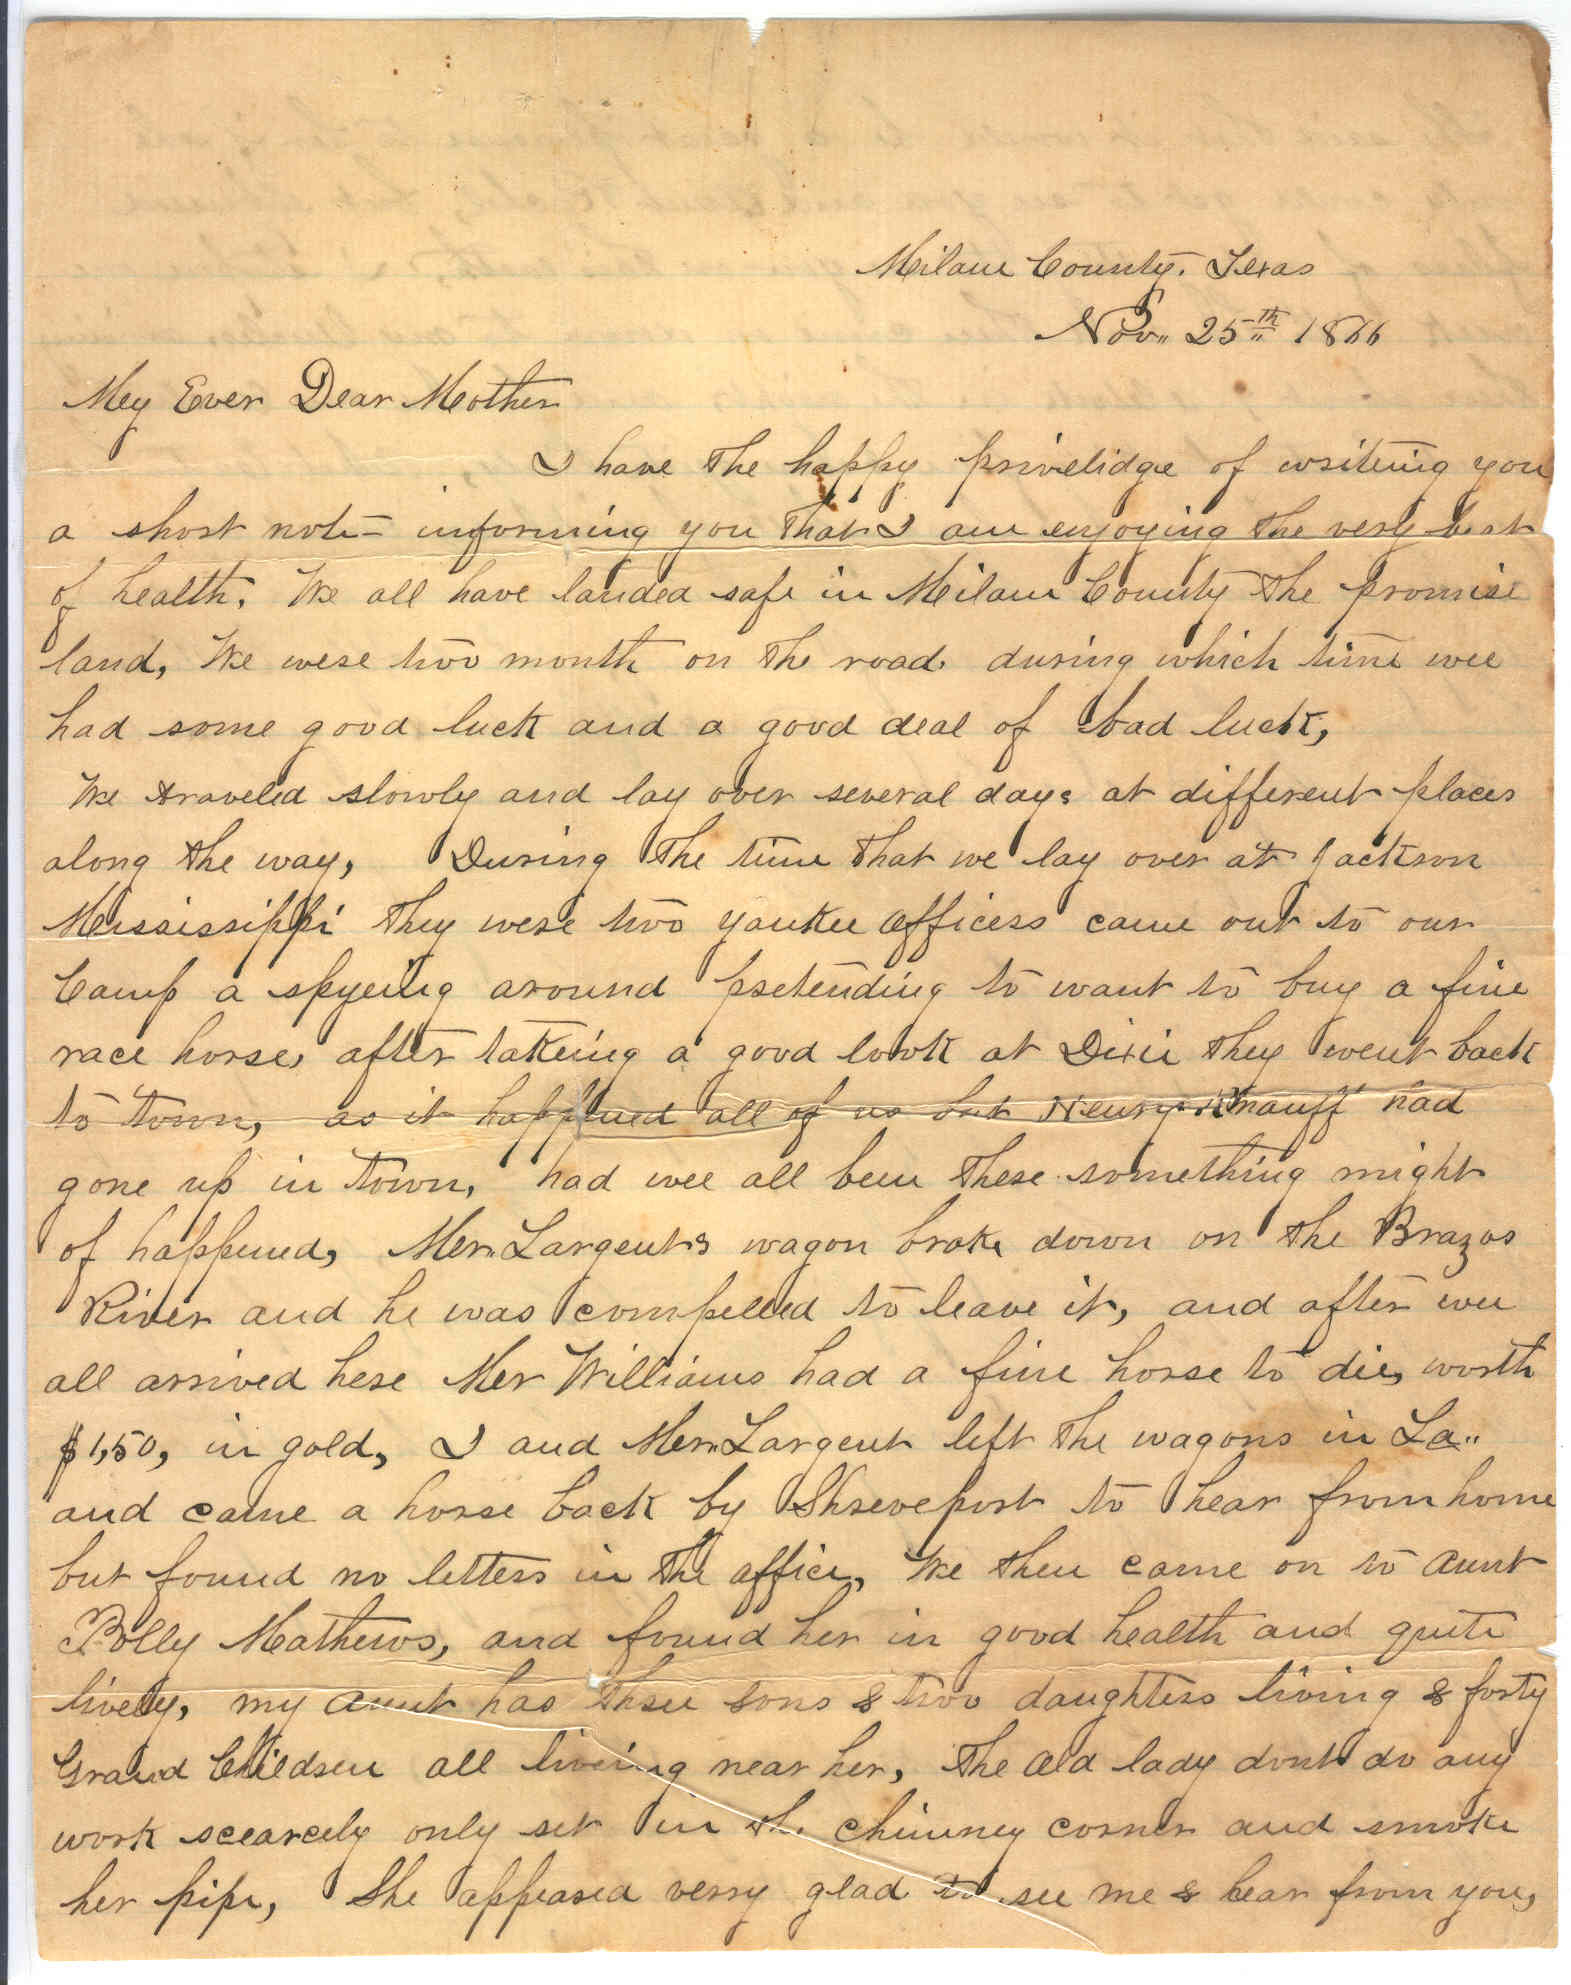 Milam County. Texas
Nov. 25th 1866
My Ever Dear Mother
I have the happy privelidge of writeing you
a short note informing you that I am enjoying the very best
of health. We all have landed safe in Milam County the promise
land, We were two month on the road. during which time wee
had some good luck and a good deal of bad luck,
We traveled slowly and lay over several days at different places
along the way, During the time that we lay over at Jackson
Mississippi they were two yankee officers came out to our
Camp a spyeing around pretending to want to buy a fine
race horse, after takeing a good look at Dixie they went back
to town, as it happened all of us but Henry Knauff had
gone up in town, had wee all been there something might
of happened, Mr. Largent's wagon broke down on the Brazos
River and he was compelled to leave it, and after wee
all arrived here Mr Williams had a fine horse to die, worth
$1,50, in gold, I and Mr. Largent left the wagons in La..
and came a horse back by Shreveport to hear from home
but found no letters in the office, We then came on to aunt
Polly Mathews, and found her in good health and quite
lively, my aunt has three sons & two daughters living & forty
Grand Children all liveing near her, the old lady dont do any
work scearcely only set in the chimney corner and smoke
her pipe, She appeared verry glad to see me & hear from you,